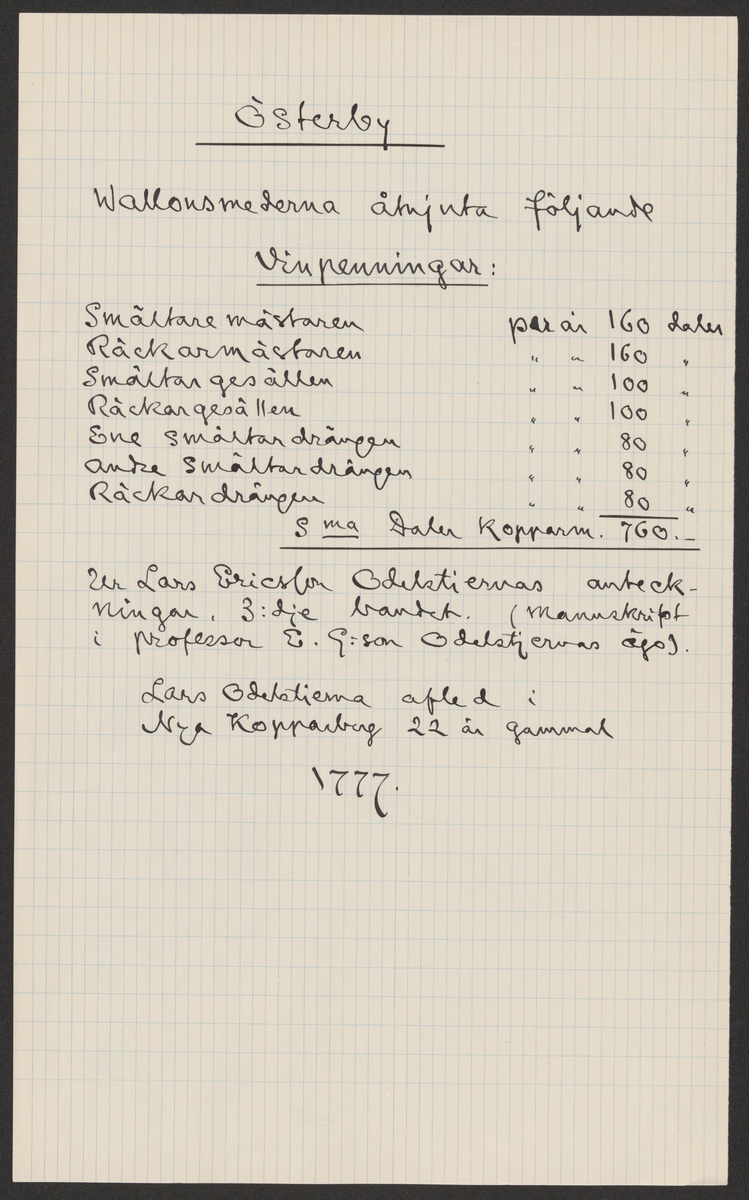 Österby
Wallonsmederna åtnjuta följande
Vinpenningar:
Smältaremästaren per år 160 daler
Räckarmästaren " " 160 "
Smältargesällen " " 100 "
Räckargesällen " " 100 "
Ene smältardrängen " " 80 "
andre smältardrängen " " 80 "
Räckardrängen " " 80 "
Sma Daler Kopparm. 760.-
Ur Lars Ericsson Odelstiernas anteck-
ningar. 3:dje bandet. (Manuskript
i professor E. G:son Odelstjernas ägo).
Lars Odelstierna afled i
Nya Kopparberg 22 år gammal
1777.